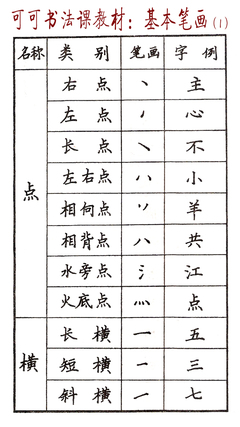 可可书法课教材：基本笔画(1)
名称 类别 笔画 字例
点
右点 丶 主
左点 ㇒ 心
长点 ㇏ 不
左右点 八 小
相向点 丷 羊
相背点 八 共
水旁点 氵 江
火底点 灬 点
横
长横 一 五
短横 一 三
斜横 ㇀ 七